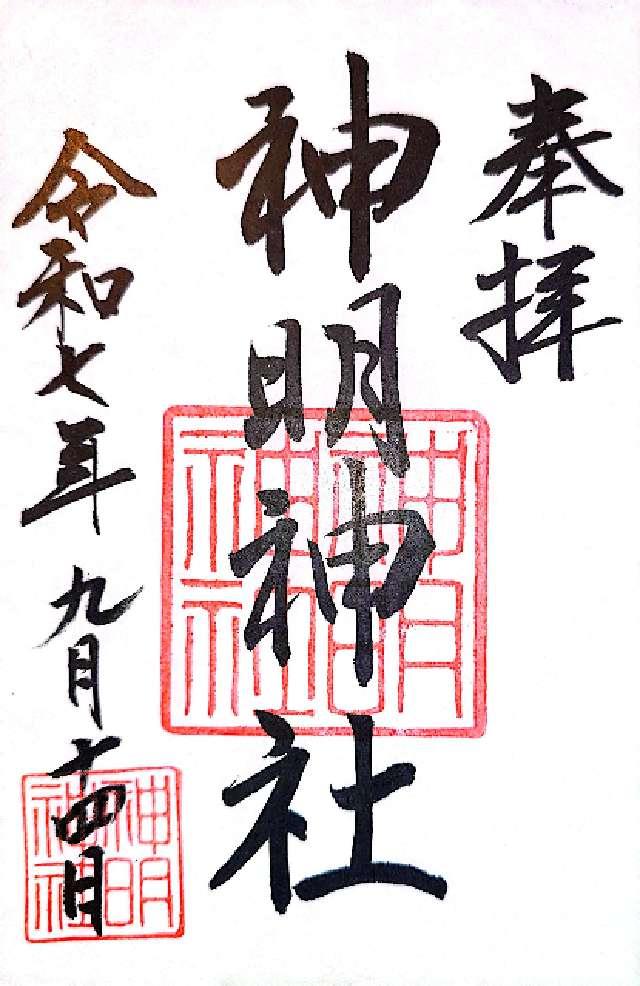 奉拝
神明神社
令和七年九月十四月
神明神社
神明神社